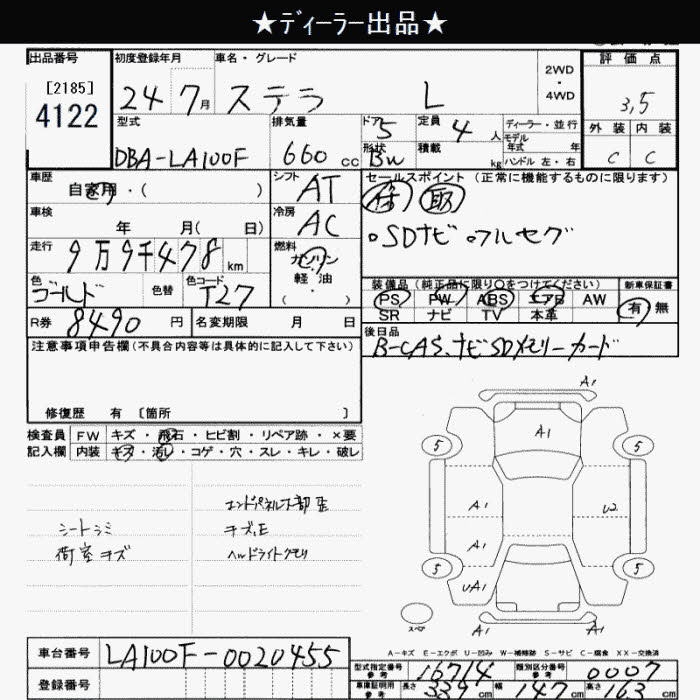 ★ディーラー出品★
出品番号 初度登録年月 車名・グレード 評価点
[2185]
4122
24 7月 ステラ L 2WD・4WD 3,5
型式 排気量 ドア 定員 ディーラー・並行 外装 内装
DBA-LA100F 660 cc 5 4人 モデル年式 年
形状 BW 積載 kg ハンドル 左・右 C C
車歴 自家用・( ) シフト AT セールスポイント (正常に機能するものに限ります)
車検 年 月( 日) 冷房 AC
。SDナビ 。フルセグ
走行 9万9千478km 燃料 ガソリン 軽油 ( ・ )
色 ゴールド 色替 色コード T27
装備品 (純正品に限り〇をつけてください) 新車保証書
PS PW ABS エアB AW 有 無
SR ナビ TV 本革
R券 8490円 名変期限 月 日
後日品
B-CAS、ナビSDメモリーカード
注意事項申告欄 (不具合内容等は具体的に記入して下さい)
修復歴 有 〔箇所 〕
検査員 FW キズ・飛石・ヒビ割・リペア跡・×要
記入欄 内装 キズ・汚れ・コゲ・穴・スレ・キレ・破レ
A1
A1
5 5
A1 U2
A1
5 5
UA1
スペア
A1
シートシミ
荷室キズ
エンドパネル下部歪
キズ,E
ヘッドライトクモリ
A-キズ E-エクボ U-凹み W-補修跡 S-サビ C-腐食 XX-交換済
車台番号 LA100F-0020455
型式指定番号 参考 16714 類別区分番号 参考 0007
登録番号
車庫証明用 参考 長さ 339cm 幅 147cm 高さ 163cm